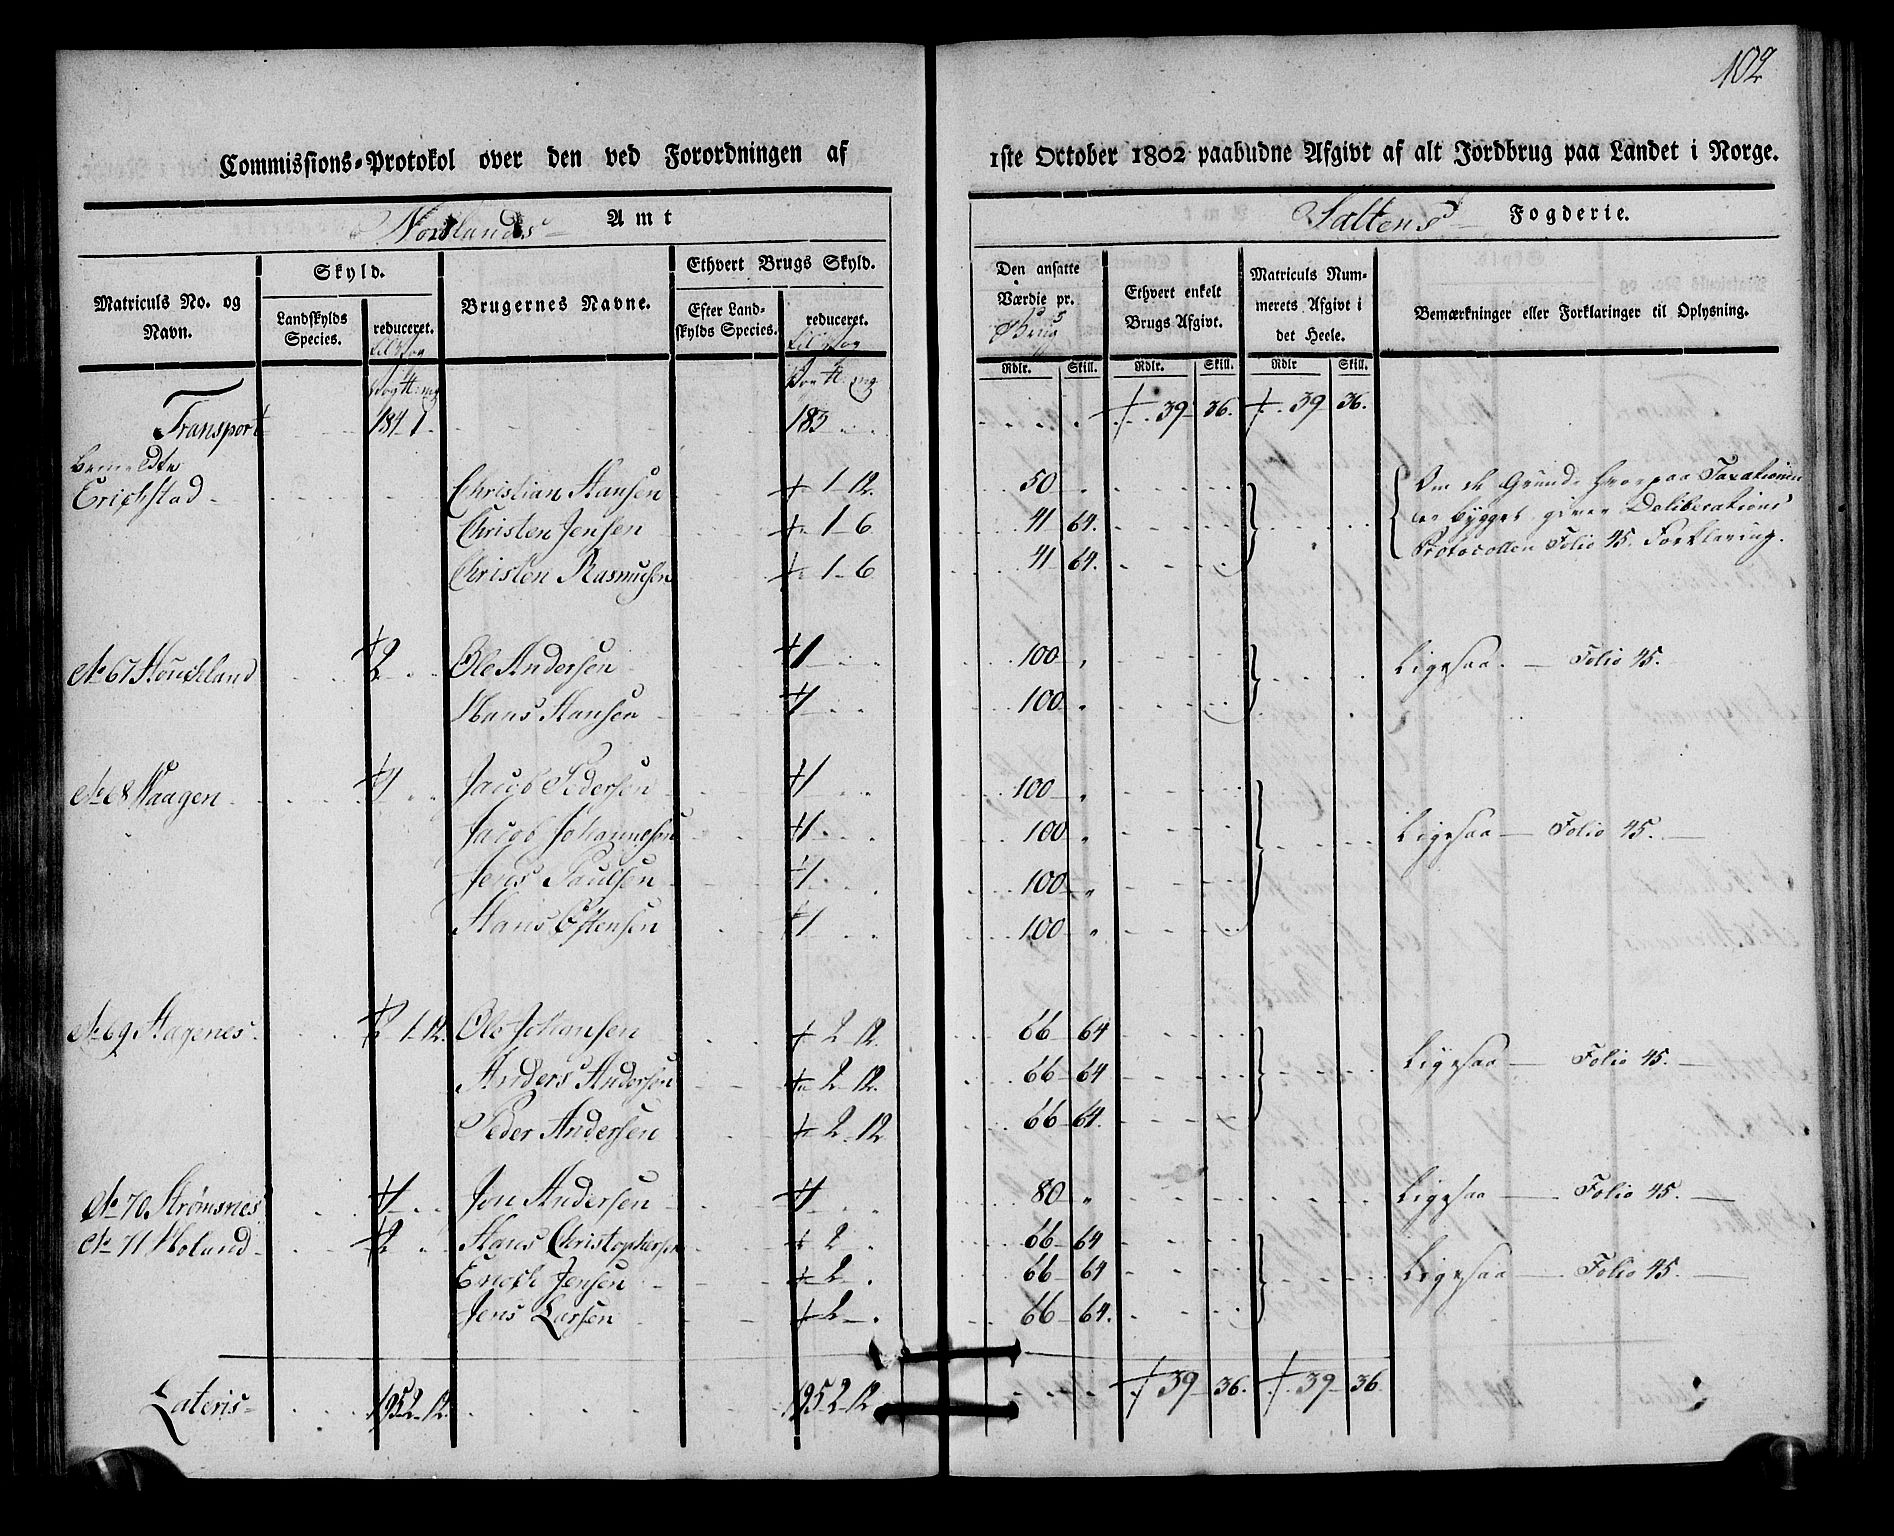 102
Commissions-Protokol over den ved Forordningen af 1ste October 1802 paabudne Afgivt af alt Jordbrug paa Landet i Norge.
Nordlands Amt
Saltens Fogderie.
Matriculs No. og Navn.
Skyld.
Landskylds Species.
reduceret. til Vog
Vog ℔: mg
Brugernes Navne.
Ethvert Brugs Skyld.
Efter Landskylds Species.
reduceret. til Vog
Vog ℔: mg
Den ansatte Værdie pr. Brug
Rdlr. Skill.
Ethvert enkelt Brugs Afgivt.
Rdlr. Skill.
Matriculs Nummerets Afgivt i det Heele.
Rdlr Skill.
Bemærkninger eller Forklaringer til Oplysning.
Transport 184 1 183 39 36. 39 36.
bemeldte
Erichstad Christian Hansen 1 12. 50 Om de Grunde hvorpaa Taxationen
Christen Jensen 1 6 41 64. er bygget, giver Deliberations
Christen Rasmusen 1 6 41 64. Protocollen Folio 45. Forklaring.
No 67 2 Ole Andersen 1 100 Ligesaa. Folio 45.
Hans Hansen 1 100
No 68 Haagen 4 Jacob Pedersen 1 100
Jacob Johannesen 1 100 Ligesaa Folio 45.
Jens Paulsen 1 100
Hans Østensen 1 100
No 69 Hagenes 2 1 12. Ole Johansen 2 12. 66 64
Anders Andersen 2 12. 66 64 Ligesaa Folio 45.
Peder Andersen 2 12 66 64.
No 70 Strømsnes 1 Jon Andersen 1 80 Ligesaa Folio 45.
No 71 Moland 2 Hans Christophersen 2 66 64
Enoch Jensen 2 66 64 Ligesaa Folio 45.
Jens Larsen 2 66 64.
Lateris 195 2 12. 195 2 12 39 36. 39 36